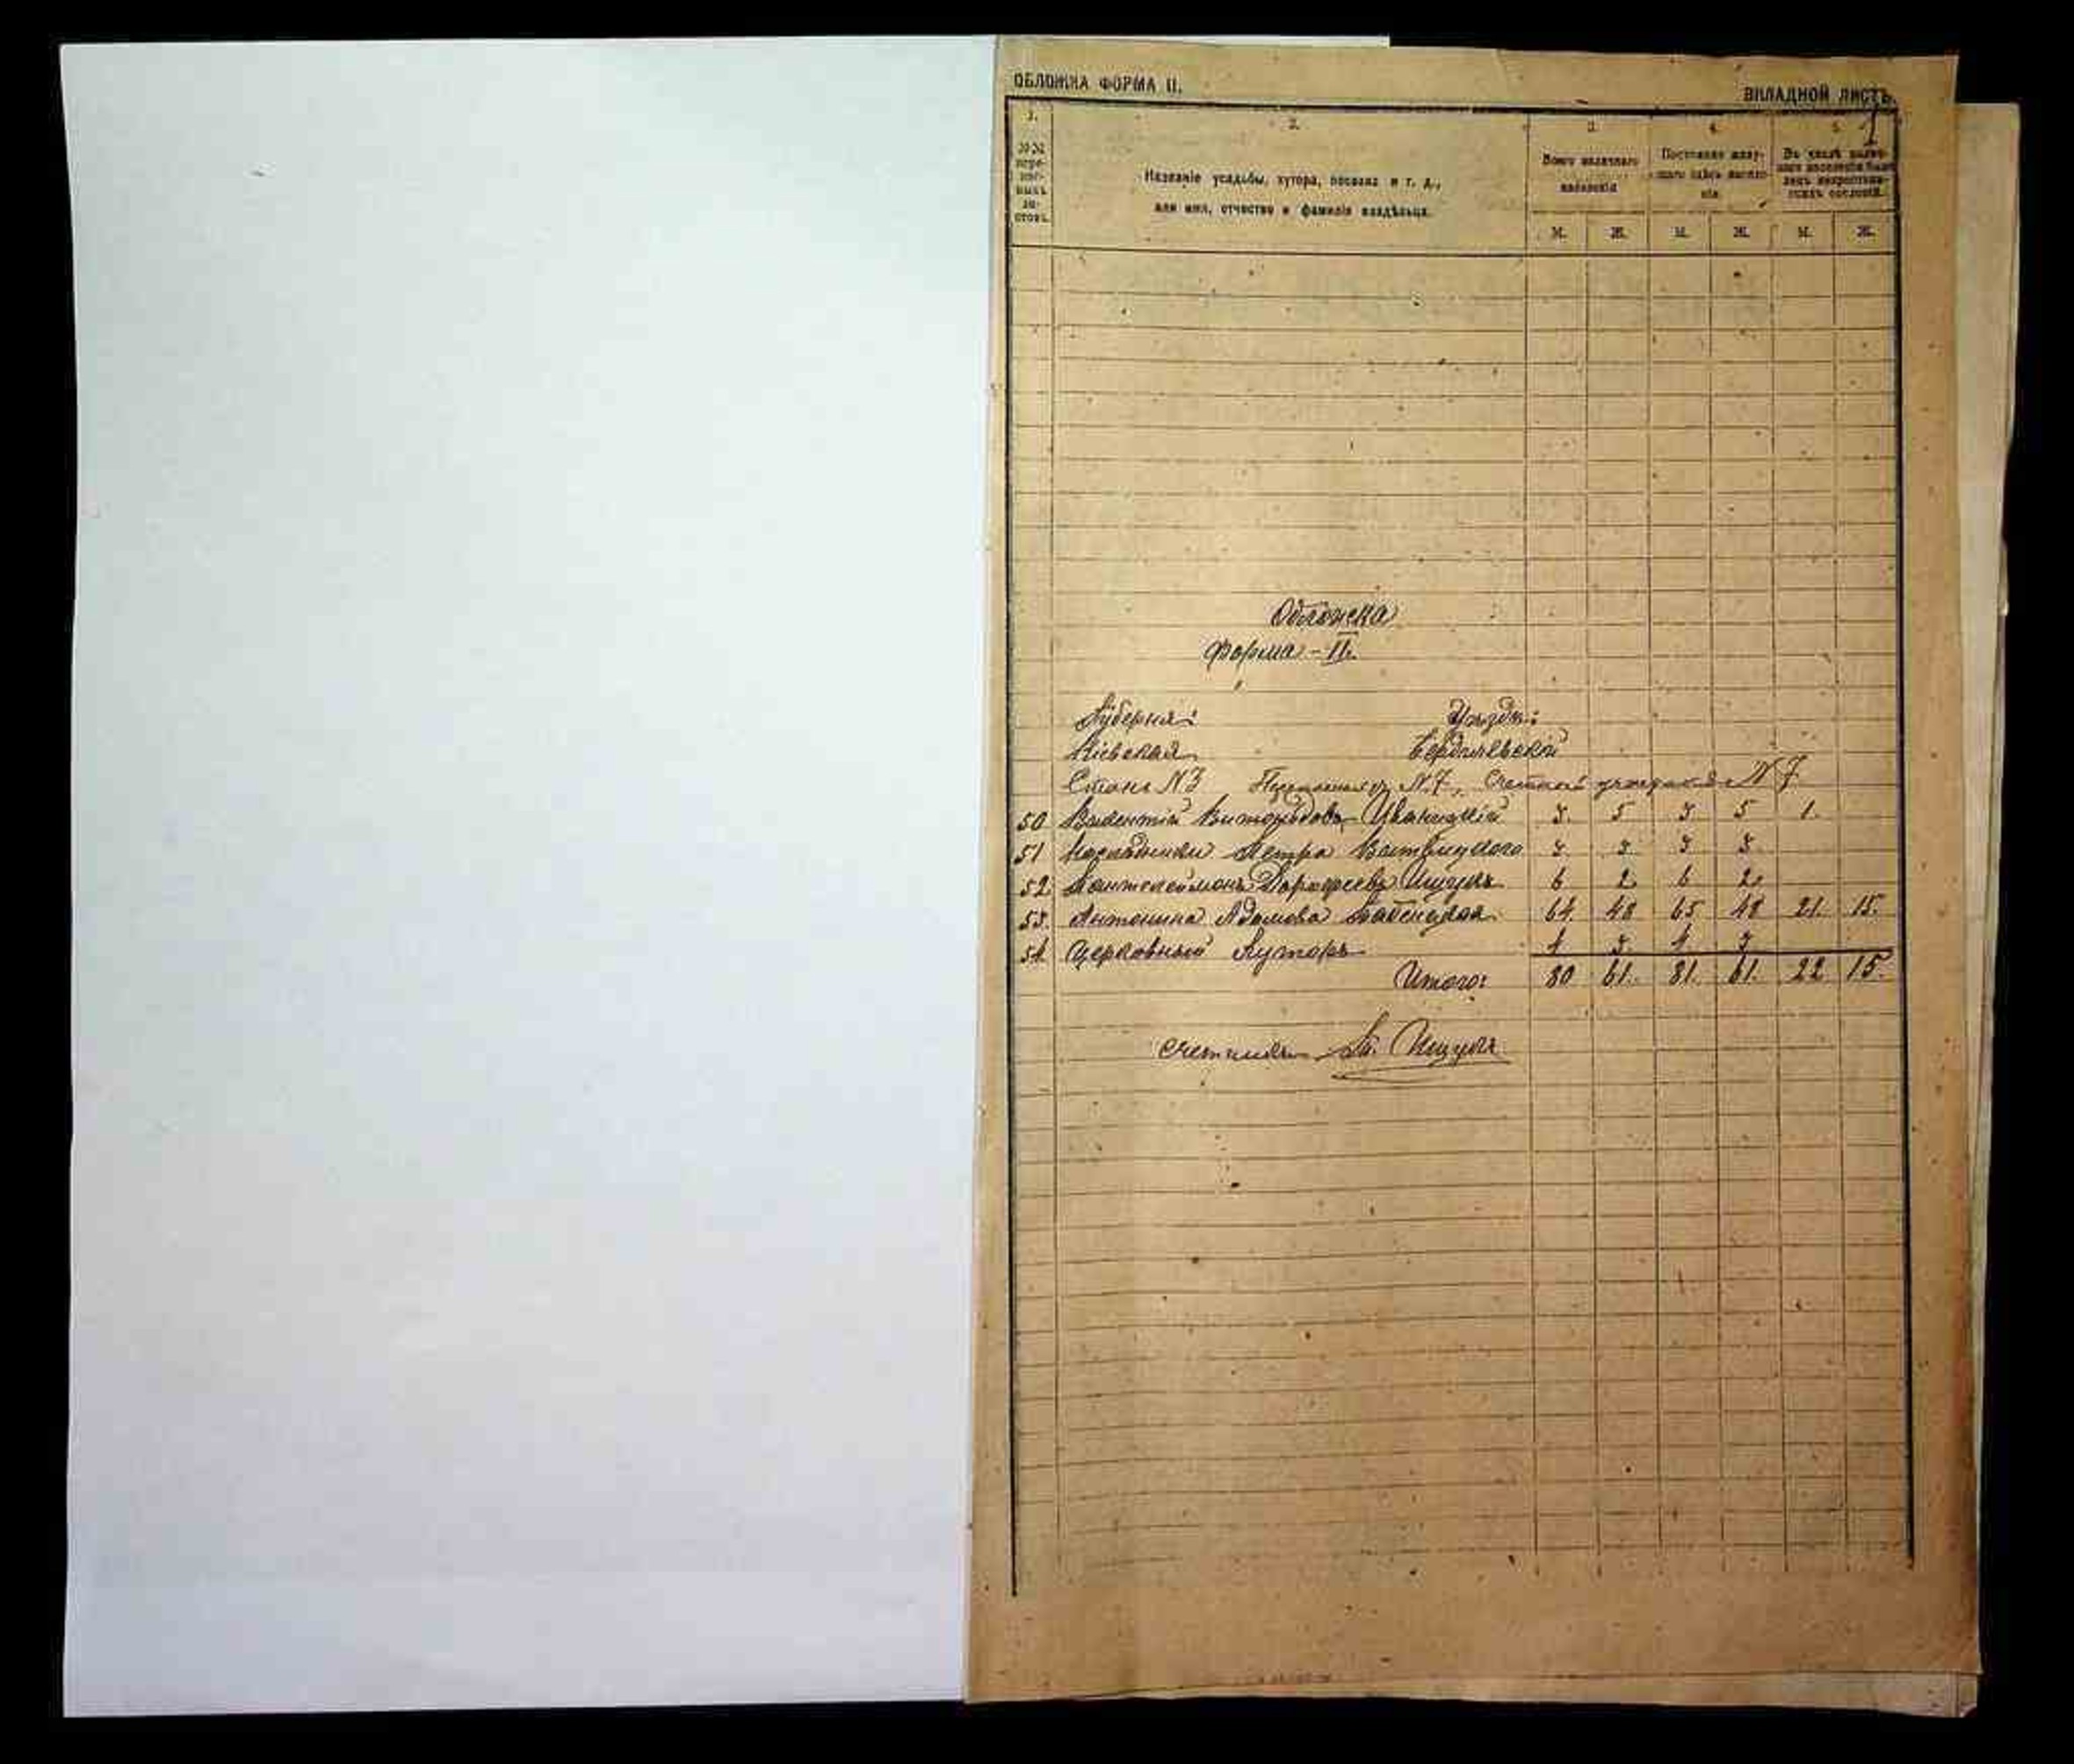 ОБЛОЖКА ФОРМА II.
ВКЛАДНОЙ ЛИСТЪ.
1
1. 2. 3. 4. 5.
№№ переписныхъ листовъ.
Названіе усадьбы, хутора, поселка и т. д.,
или имя, отчество и фамилія владѣльца.
Всего наличнаго населенія
Постоянно живущаго здѣсь населенія
Въ числѣ наличнаго населенія было лицъ некрестьянскихъ сословій.
М. Ж. М. Ж. М. Ж.
Обложка
Форма - II.
Губернія: Уѣздъ:
Кіевская Бердичевскій
Станъ N3 N.7, Счетный участокъ N 7
50 Викентій 3. 5 3 5 1.
51 Наслѣдники Петра 3 3 3 3
52 Пантелеймонъ Ищукъ 6 2 6 2
53. Антонина Адамова 64. 48 65 48 21. 15.
54. Церковный Хуторъ 4 3. 4 3
Итого: 80 61. 81. 61. 22 15.
Счетчикъ Ищукъ